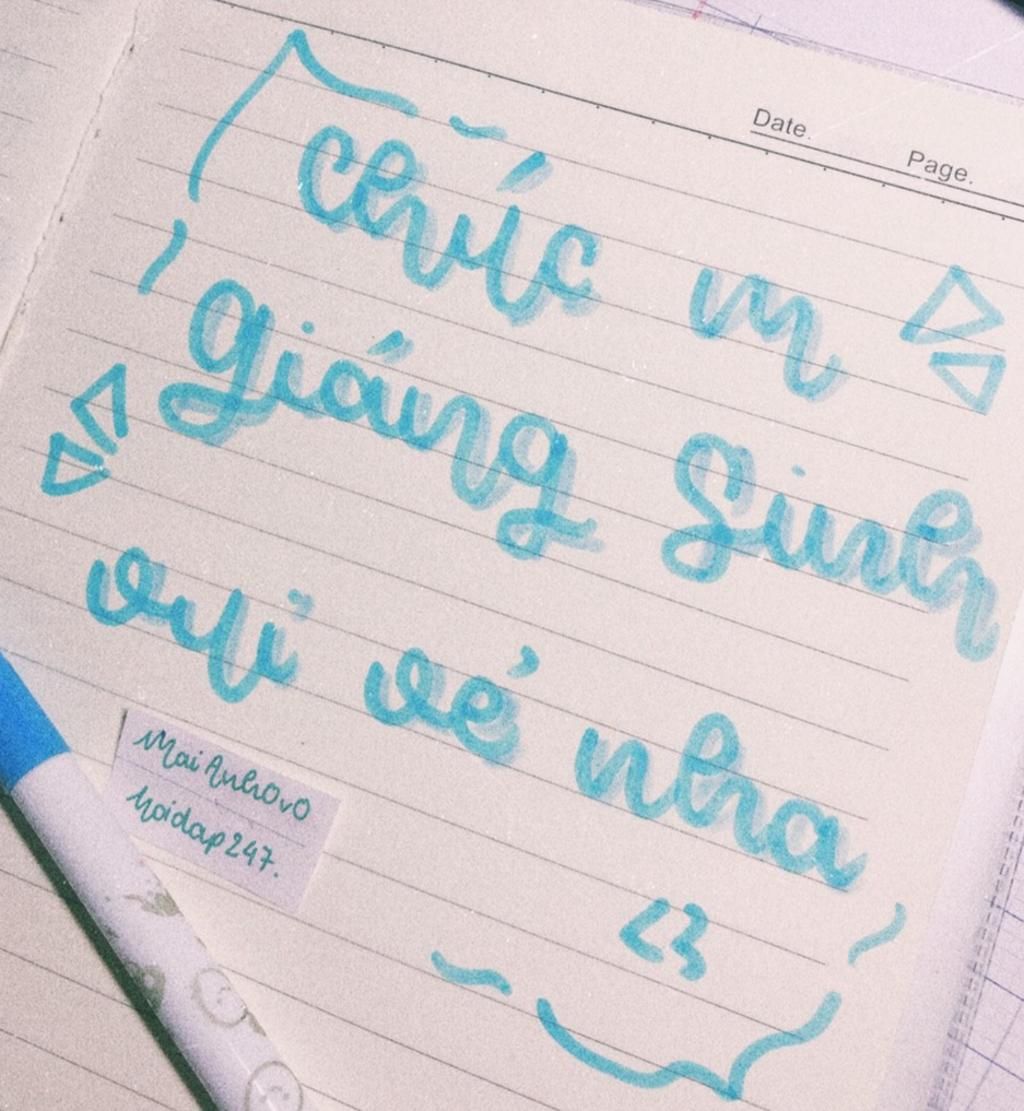 Date.
Page.
Chúc m
giáng Sinh
vui vẻ nha
<3
MaiAnhOvO
hoidap247.